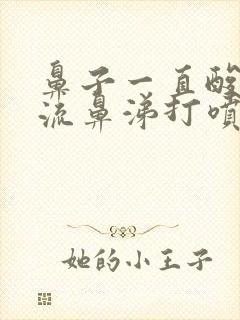 鼻子一直酸
流鼻涕打噴
她的小王子